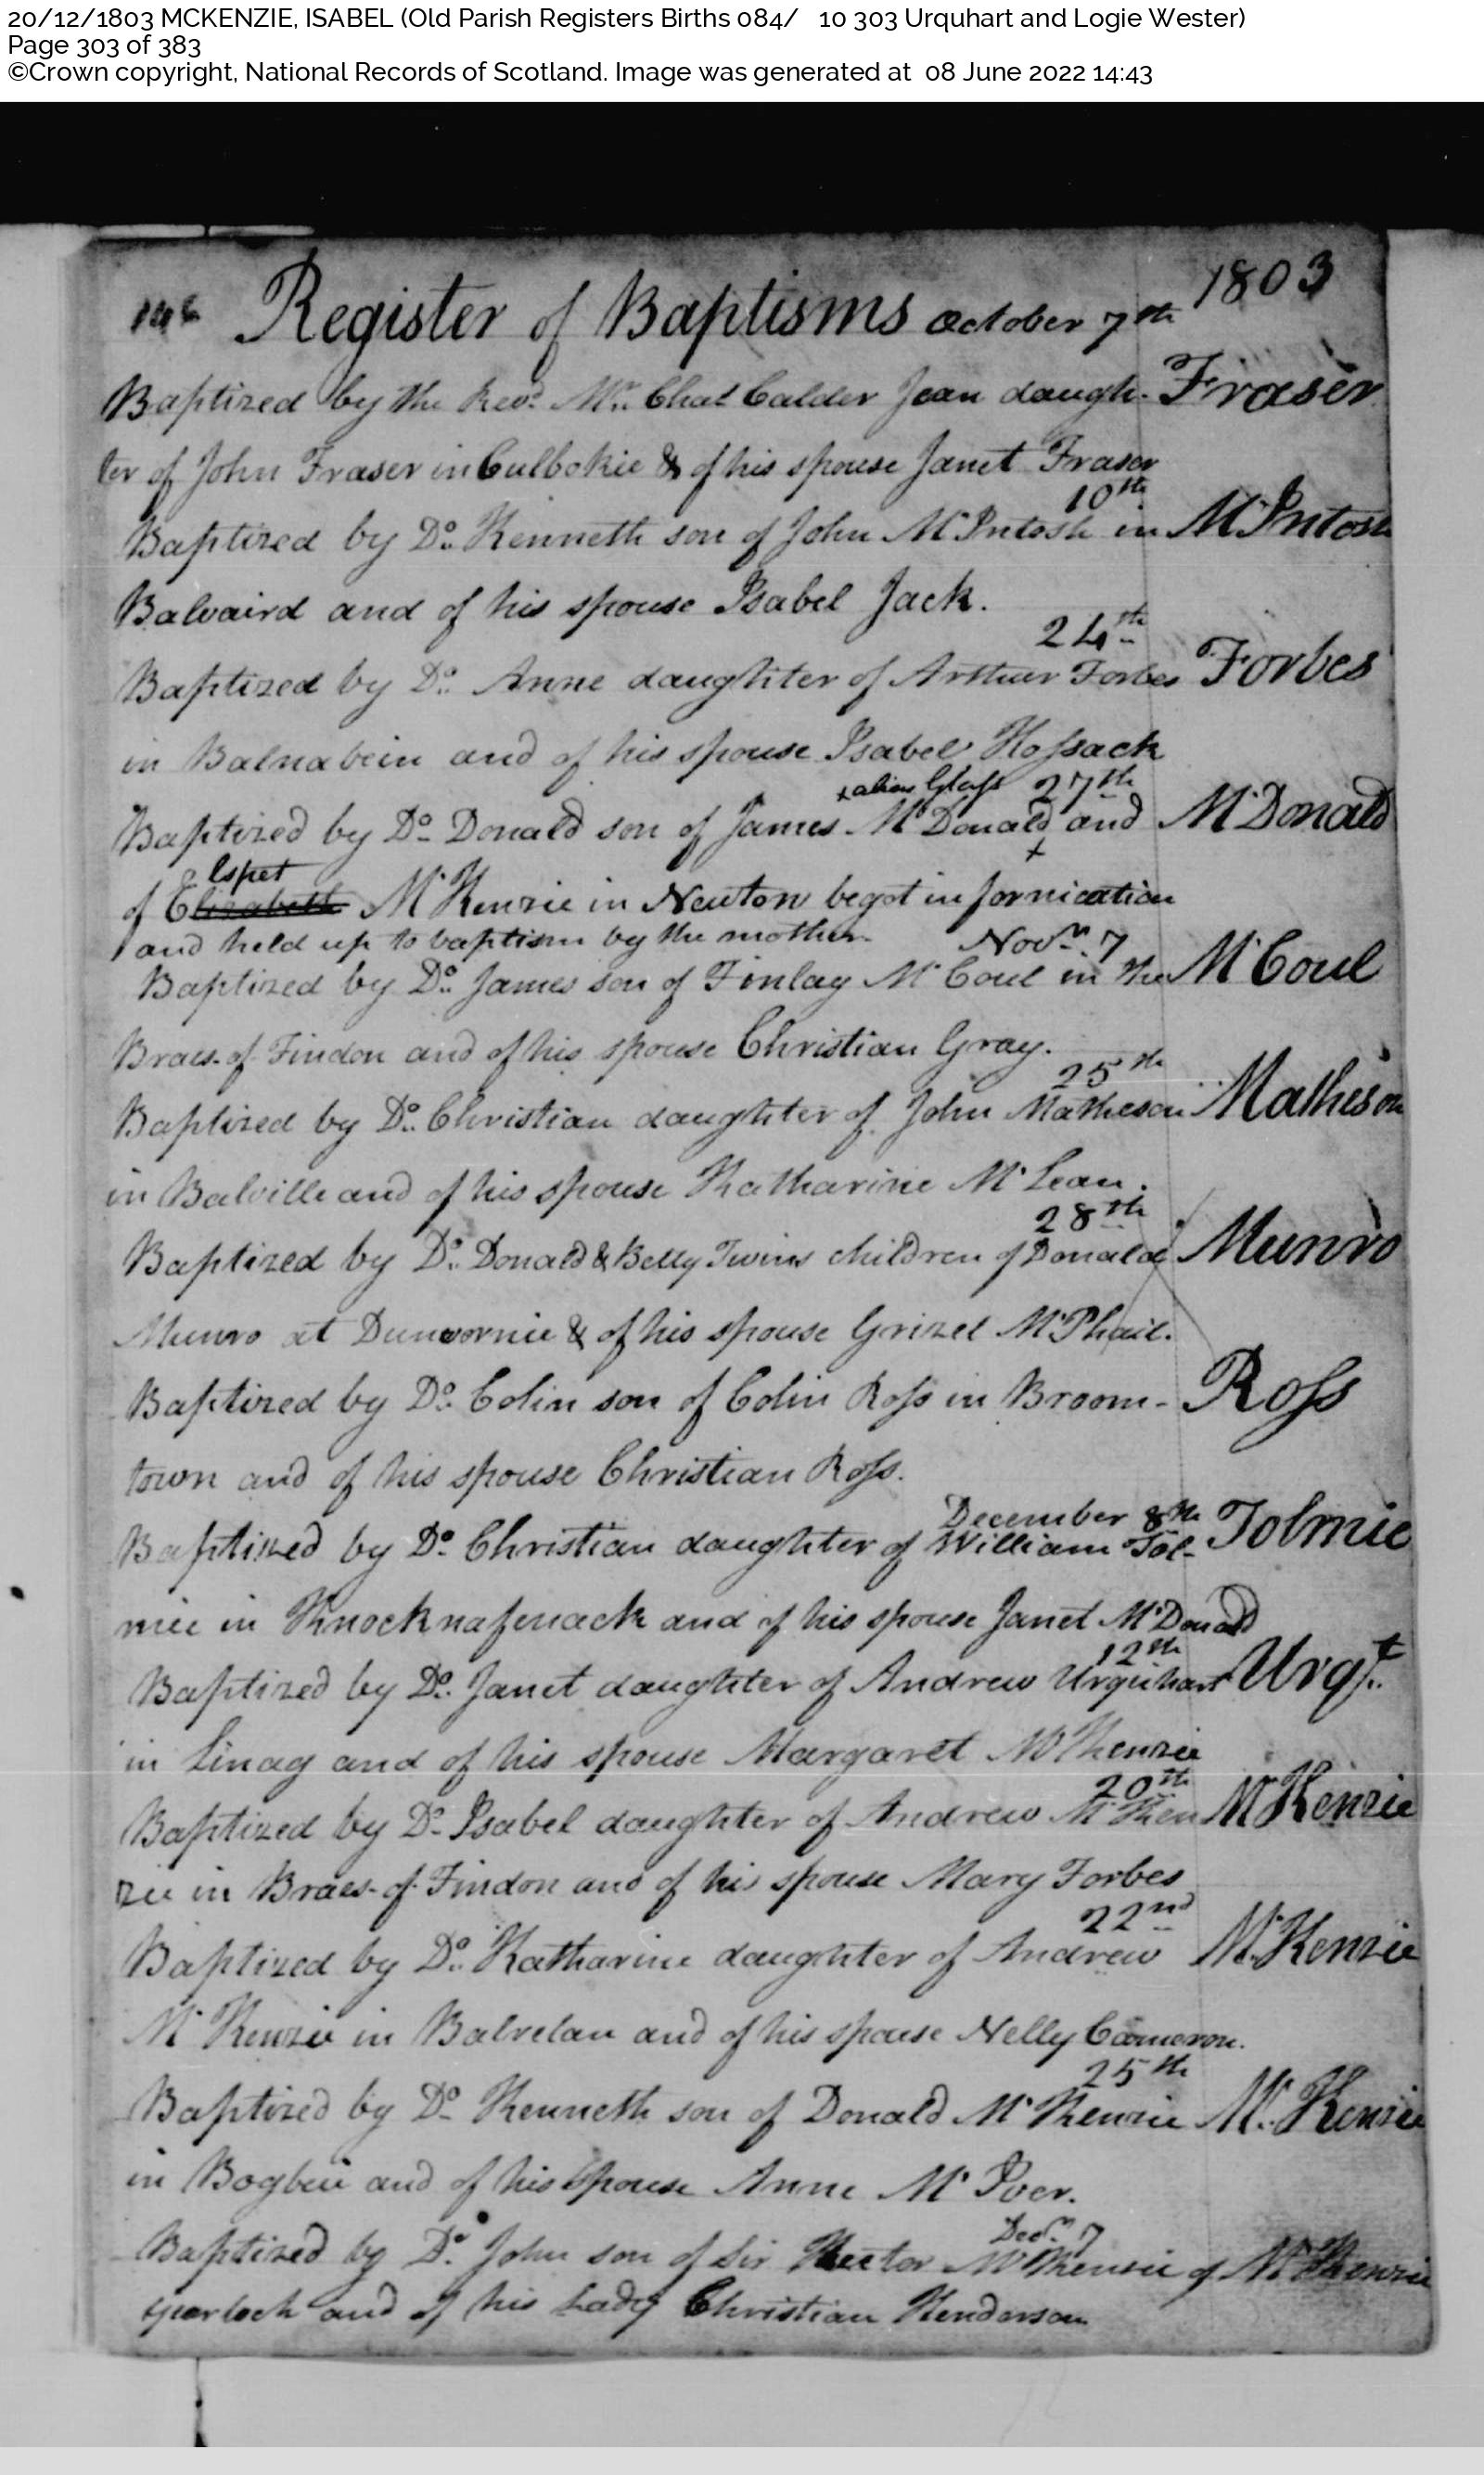 20/12/1803 MCKENZIE, ISABEL (Old Parish Registers Births 084/ 10 303 Urquhart and Logie Wester)
Page 303 of 383
©Crown copyright, National Records of Scotland. Image was generated at 08 June 2022 14:43
1803
Register of Baptisms October 7th
Baptized by the Revd. Mr. Chas Calder Jean daugh- Fraser
ter of John Fraser in Culbokie & of his spouse Janet Fraser
10th
Baptized by Do. Kenneth son of John McIntosh in McIntosh
Balvaird and of his spouse Isabel Jack.
24th
Baptized by Do. Anne daughter of Arthur Forbes Forbes
in Balnabein and of his spouse Isabel Hossack
x alias Glass 27th
Baptized by Do. Donald son of James McDonald and McDonald
x
Espet
of Elizabeth McKenzie in Newton begot in fornication
and held up to baptism by the mother. Novr. 7
Baptized by Do. James son of Finlay McCoul in the McCoul
Braes-of-Findon and of his spouse Christian Gray.
25th
Baptized by Do. Christian daughter of John Matheson Matheson
in Balville and of his spouse Katharine McLean.
28th
Baptized by Do. Donald & Belly Twins children of Donald Munro
Munro at Dunvornie & of his spouse Grizel McPhail.
Baptized by Do. Colin son of Colin Ross in Broom- Ross
town and of his spouse Christian Ross.
December 8th
Baptized by Do. Christian daughter of William Tol- Tolmie
mie in and of his spouse Janet McDonald
12th
Baptized by Do. Janet daughter of Andrew Urquhart Urqt.
in Linag and of his spouse Margaret McKenzie
20th
Baptized by Do. Isabel daughter of Andrew McKen McKenzie
zie in Braes-of-Findon and of his spouse Mary Forbes
22nd
Baptized by Do. Katharine daughter of Andrew McKenzie
McKenzie in Balrelan and of his spouse Nelly Cameron.
25th
Baptized by Do. Kenneth son of Donald McKenzie McKenzie
in Bogbui and of his spouse Anne Mc
Decr. 7
Baptized by Do. John son of Sir Hector McKenzie of McKenzie
and of his Lady Christian Henderson